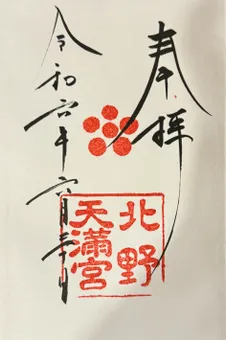 奉拝
北野
天満宮
令和六年六月三十日